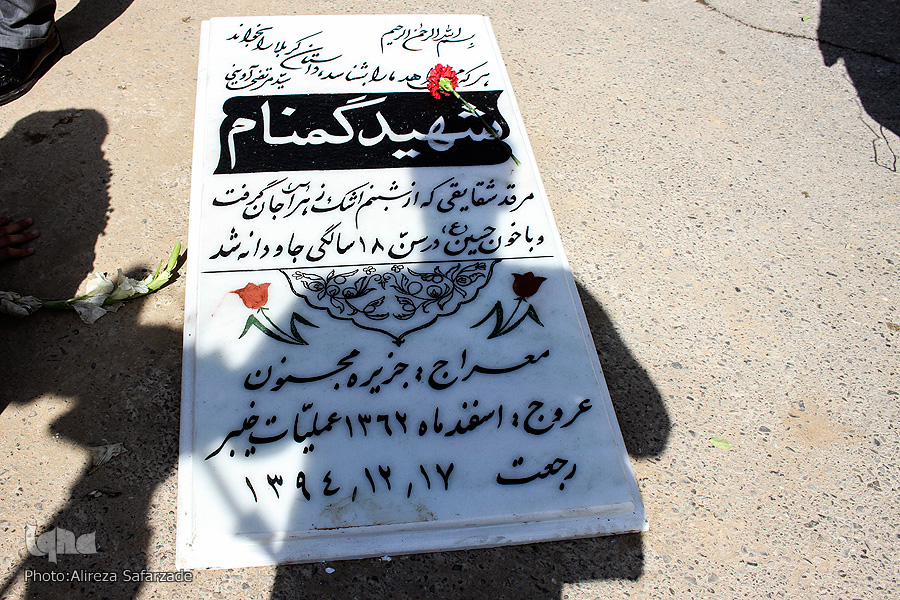 بسم الله الرحمن الرحیم
هر کس می‌خواهد ما را بشناسد، داستان کربلا را بخواند
سید مرتضی آوینی
شهید گمنام
مرقد شقایقی که از شبنم اشک زهرا(س) جان گرفت
و با خون حسین(ع) در سنّ ۱۸ سالگی جاودانه شد
معراج: جزیره مجنون
عروج: اسفند ماه ۱۳۶۲ عملیّات خیبر
رجعت ۱۳۹۴,۱۲,۱۷
iqna
Photo:Alireza Safarzade